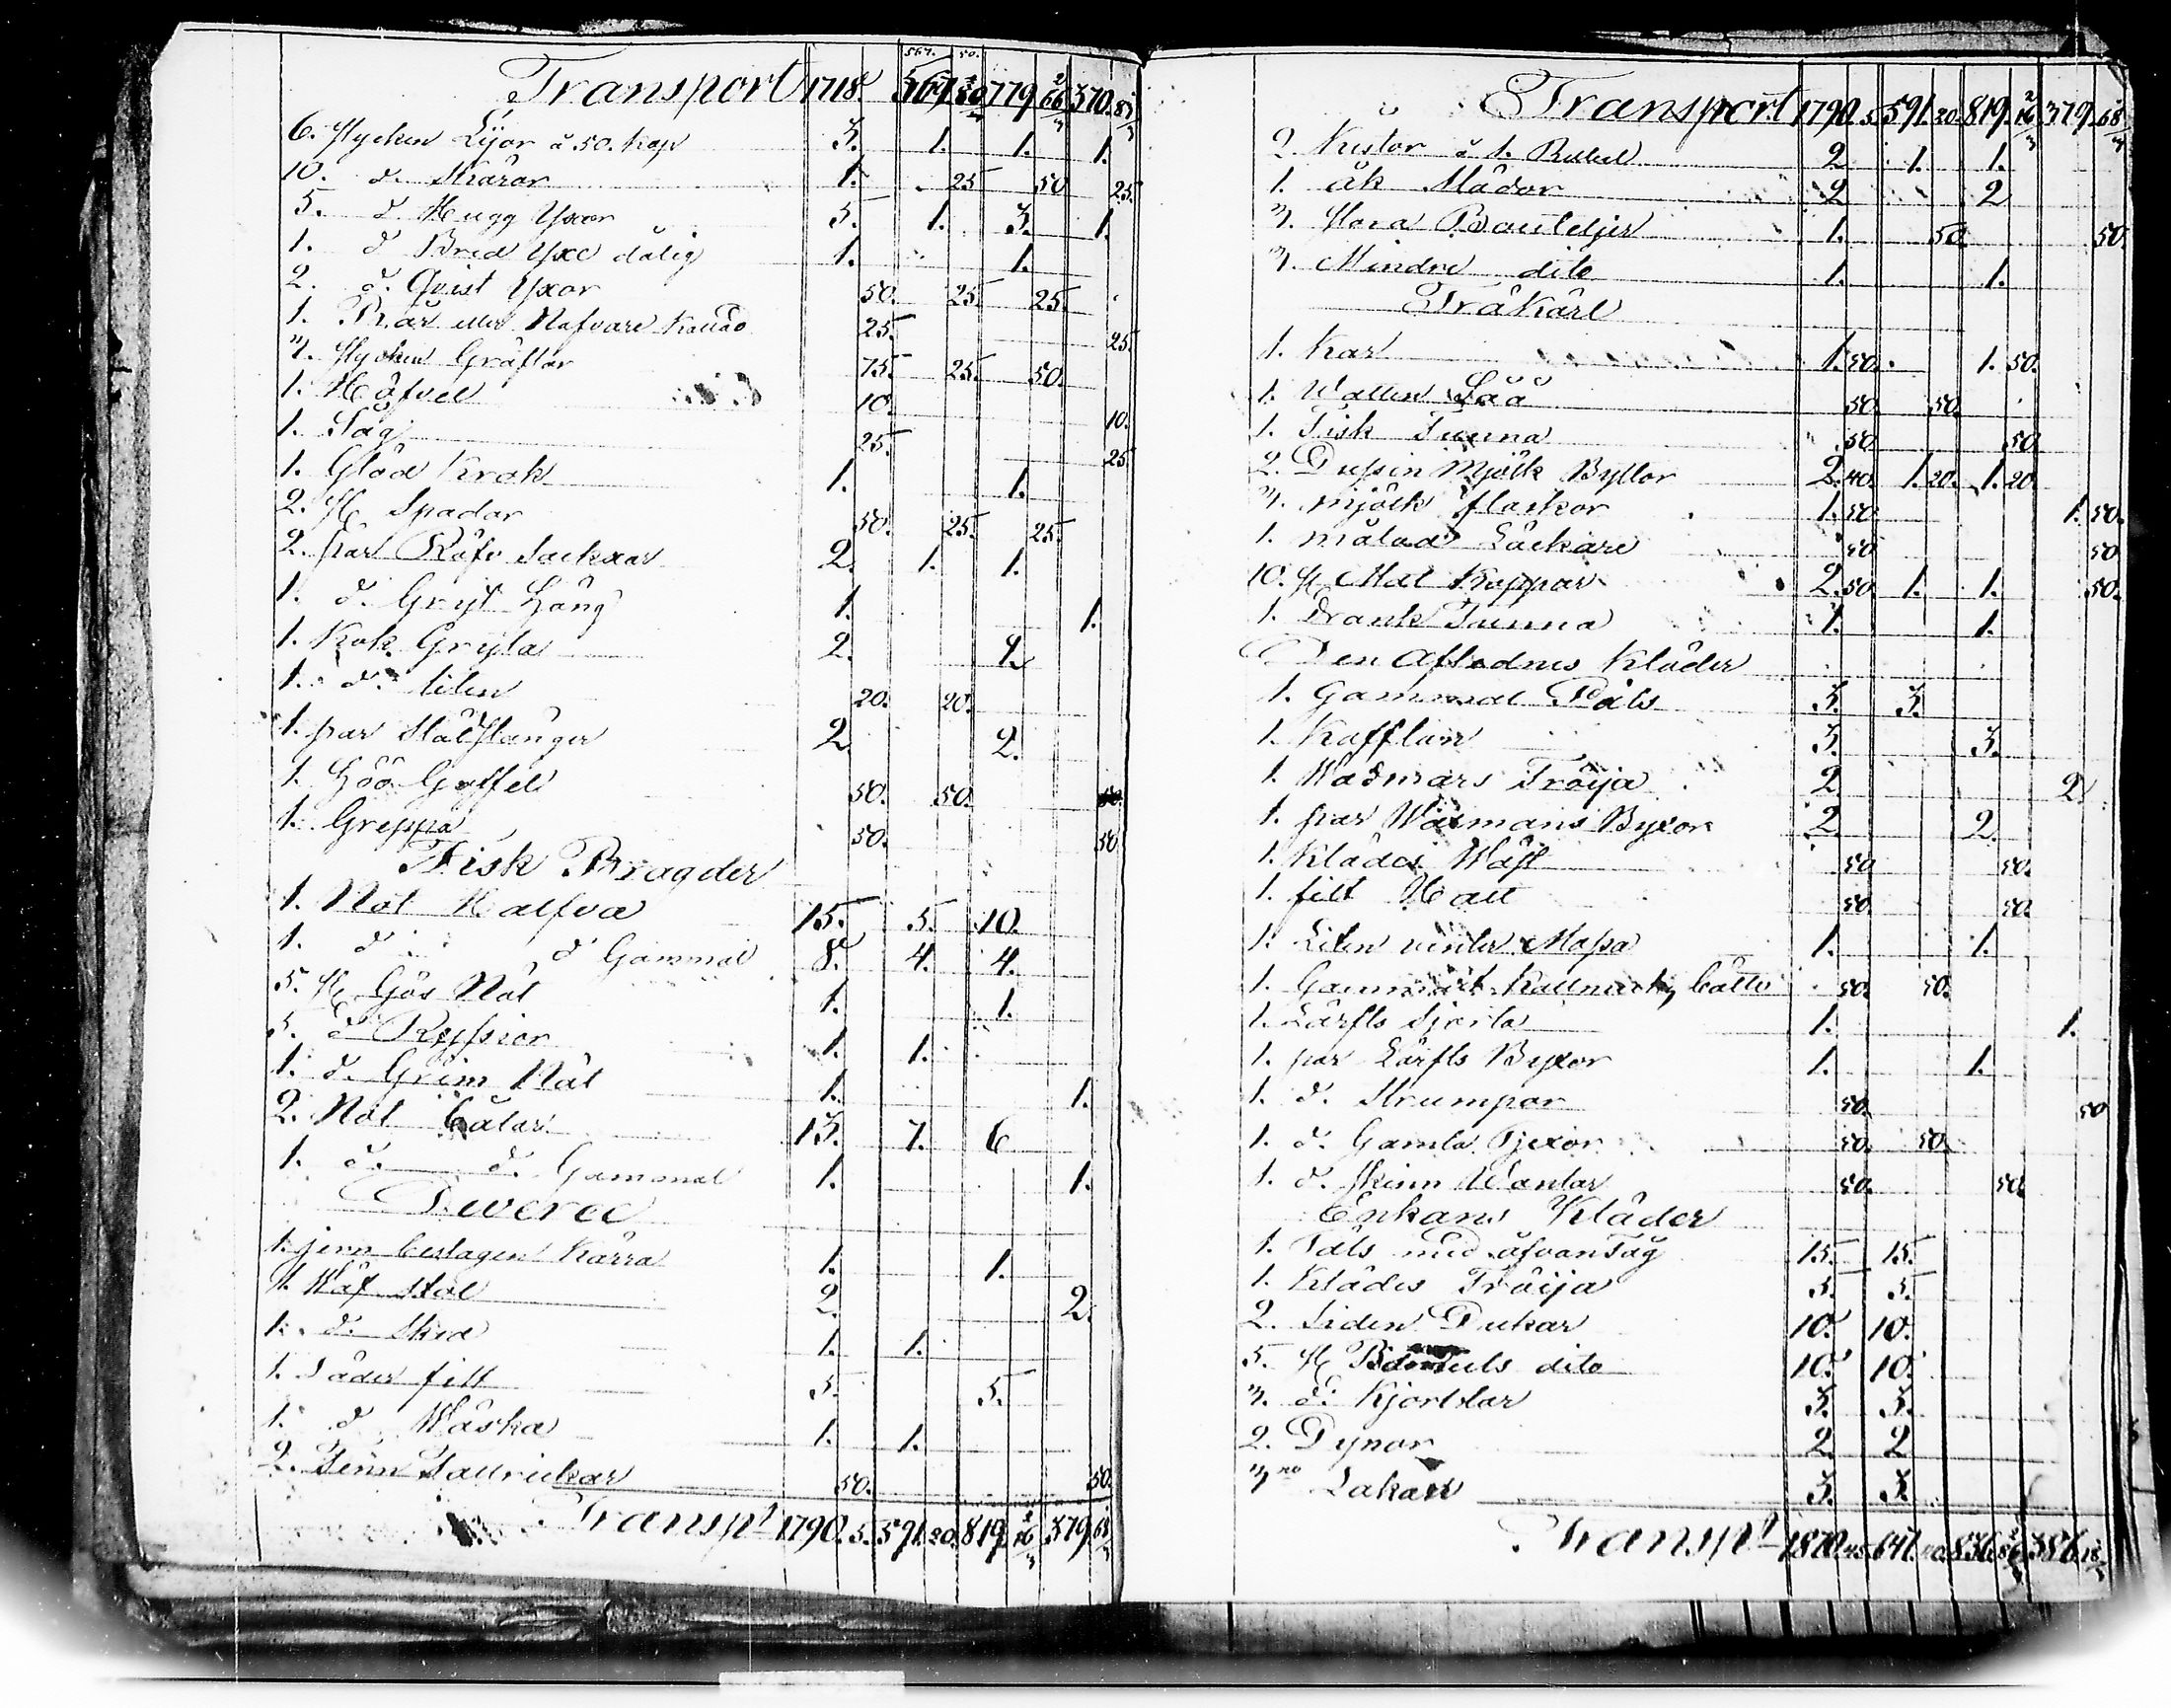 567. 50.
Transport 1718. 567. 50 779. 66 2/3 370. 87 1/3
6. stycken Lijor á 50. kop 3. 1. 1. 1.
10. d. Skäror 1. 25 50 25.
5. d. Hugg Yxor 5. 1. 3. 1.
1. d Bred Yxe dålig 1. 1.
2. d. Qvist Yxor 50. 25. 25.
1. eller Nafvare 25. 25.
3. stycken Gräftor 75. 25. 50.
1. Häfvel 10. 10.
1. Såg 25. 25
1. Glöd Krok 1. 1.
2. st Spadar 50. 25. 25.
2. par Räfv Sackxar 2. 1. 1.
1. d. Gryt Häng 1. 1.
1. Kok Gryta 2. 2.
1. d. liten 20. 20.
1. par Stålstänger 2. 2.
1. Höö Gaffel 50. 50.
1. Greppa 50. 50
Fisk Bragder
1. Not Kalfva 15. 5. 10.
1. d d Gammal 8. 4. 4.
5. st Gös Nät 1. 1.
3. d Ryssior 1. 1.
1. d. Grim Nät 1. 1.
2. Not båtar 13. 7. 6
1. d. d. Gammal 1. 1.
Diverce
1. jern beslagen Kärra 1. 1.
1. Wäf stol 2. 2.
1. d. Sked 1. 1.
1. Säder fill 5. 5.
1. d Wåska 1. 1.
2. Tenn Tallrickar 50. 50.
Transpt 1790. 5. 591. 20. 819. 16 2/3 379. 68 1/3
Transport 1790. 5. 591. 20. 819. 16 2/3 379. 68 1/3
2. Kistor á 1. Rubel 2 1. 1.
1. åk Mådor 2 2
3. stora Bouteljer 1. 50. 50.
3. Mindre dito 1. 1.
Träkäril
1. Kar 1. 50. 1. 50.
1. Watten Såå 50. 50.
1. Fisk Tunna 50 50.
2. Dussin Mjölk Byttor 2. 40. 1. 20. 1. 20.
3. mjölk flaskor 1. 50 1. 50.
1. målad 50 50
10. st Mat Koppar 2. 50 1. 1. 50.
1. Drank Tunna 1. 1.
Den Aflednes Kläder
1. Gammal Päls 3. 3.
1. Kafftan 3. 3.
1. Wadmars Tröija 2. 2.
1. par Waemans Byxor 2. 2.
1. Klädes Wäst 50 50.
1. filt Hatt 50. 50.
1. Liten vinter Måssa 1. 1.
1. Gammalt 50. 50.
1. Lärfts Sjorta 1. 1.
1. par Lärfts Byxor 1. 1.
1. d. Strumpor 50. 50
1. d. Gamla Pjexor 50. 50.
1. d. Skinn Wantar 50. 50.
Enkans Kläder
1. Päls med åfvantåg 15. 15.
1. Klädes Tröija 5. 5.
2. Siden Dukar 10. 10.
5. st Bomuls dito 10. 10.
3. d. Kjortlar 3. 3.
2. Dynor 2 2
3. Lakan 3. 3.
Transpt 1870. 45. 647. 40. 836. 86 2/3 386. 18 1/3